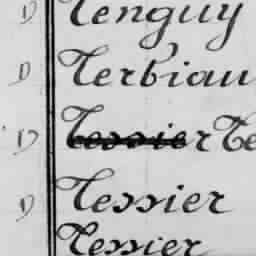 D Tenguy
D Terbiau
D Tessier Te
D Tessier
Tessier